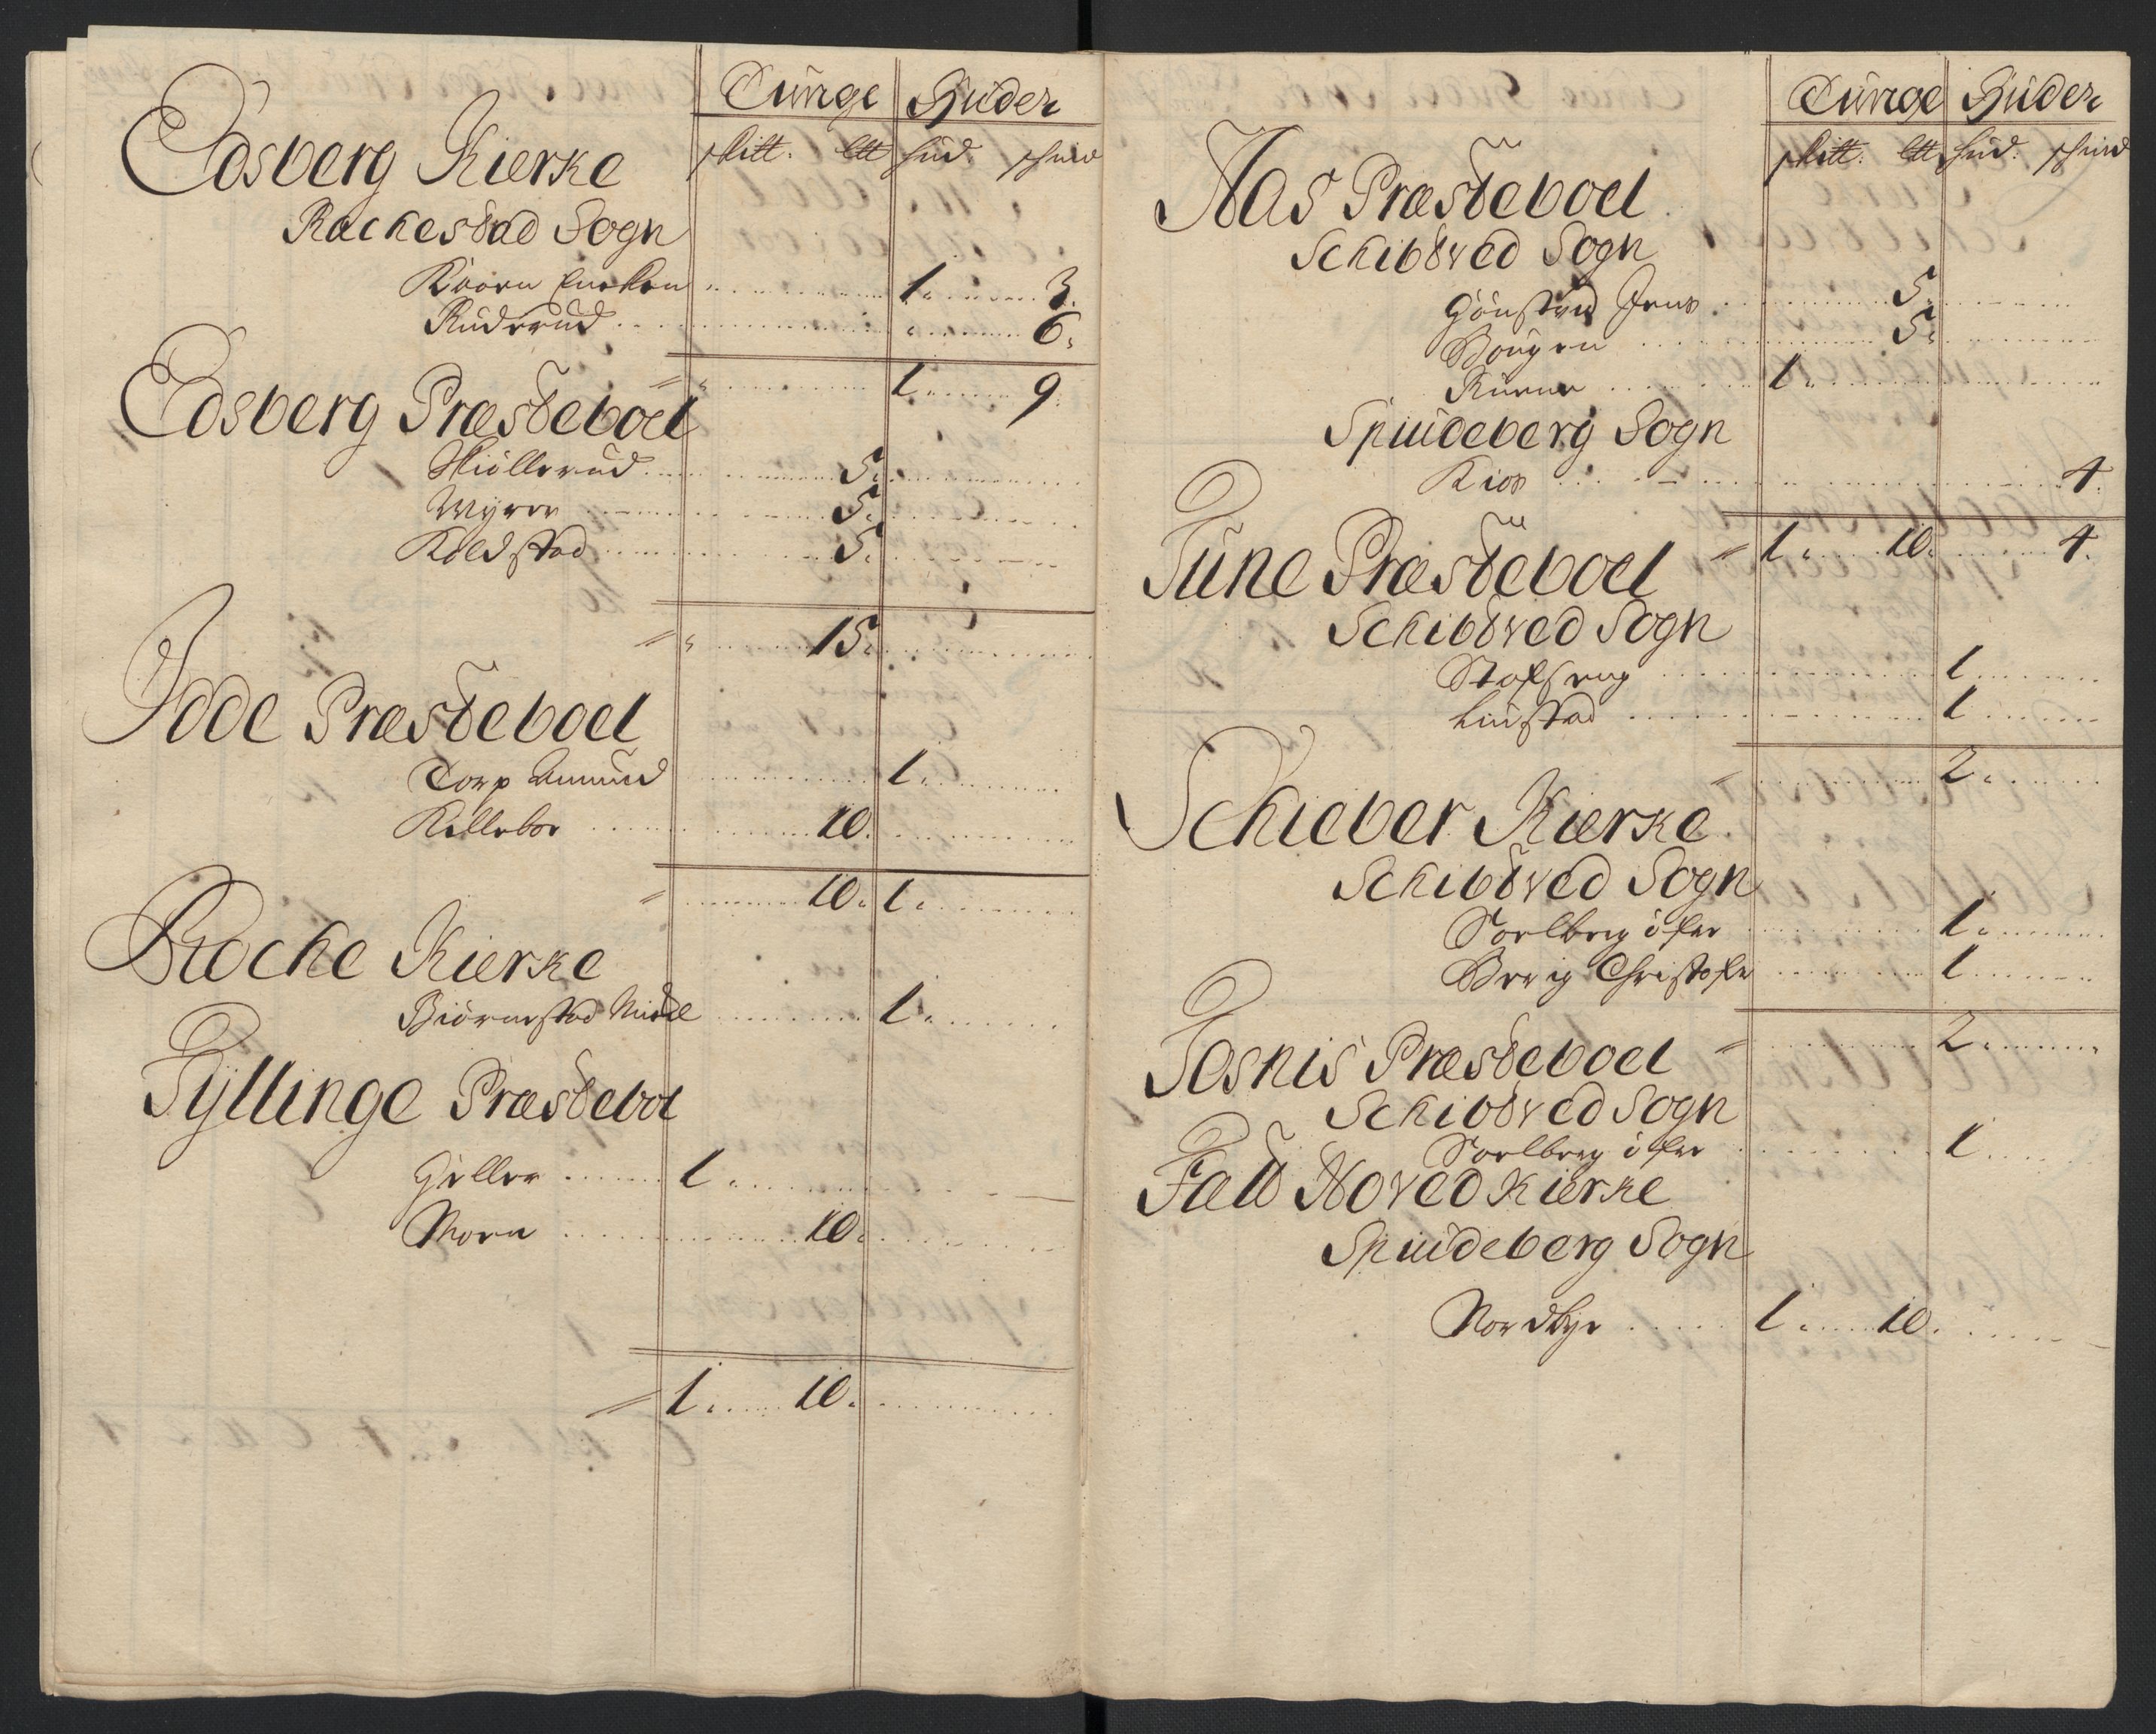 Tunge Huder
skitt. ltt hud. skind
Edsberg Kierke
Rachestad Sogn
Kaarn Enchen 1. 3.
Ruderud 6.
1. 9.
Edsberg Præsteboel
Skiøllerud 5.
Myrer 5.
Koldstad 5.
15.
Idde Præsteboel
Torp Amund 1.
Killebor 10.
10. 1.
Rocke Kierke
Biørnestad Midel 1.
Tyllinge Præstebol
Geller 1.
Morn 10.
1. 10.
Tunge Huder
skitt. ltt hud. skind
Aas Præsteboel
Schibtved Sogn
Gønsten Jens 5.
Hougen 5.
Kurne 1.
Spuideberg Sogn
Kios 4.
1. 10. 4.
Tune Præsteboel
Schibtved Sogn
Stafseng 1
Liustad 1
2.
Schieber Kierke
Schibtved Sogn
Solberg øfre 1.
Brevig Christofer 1
2.
Tosnis Præsteboel
Schibtved Sogn
Solberg øfre 1.
Fald Hoved Kierke
Spuideberg Sogn
Nordbye 1. 10.